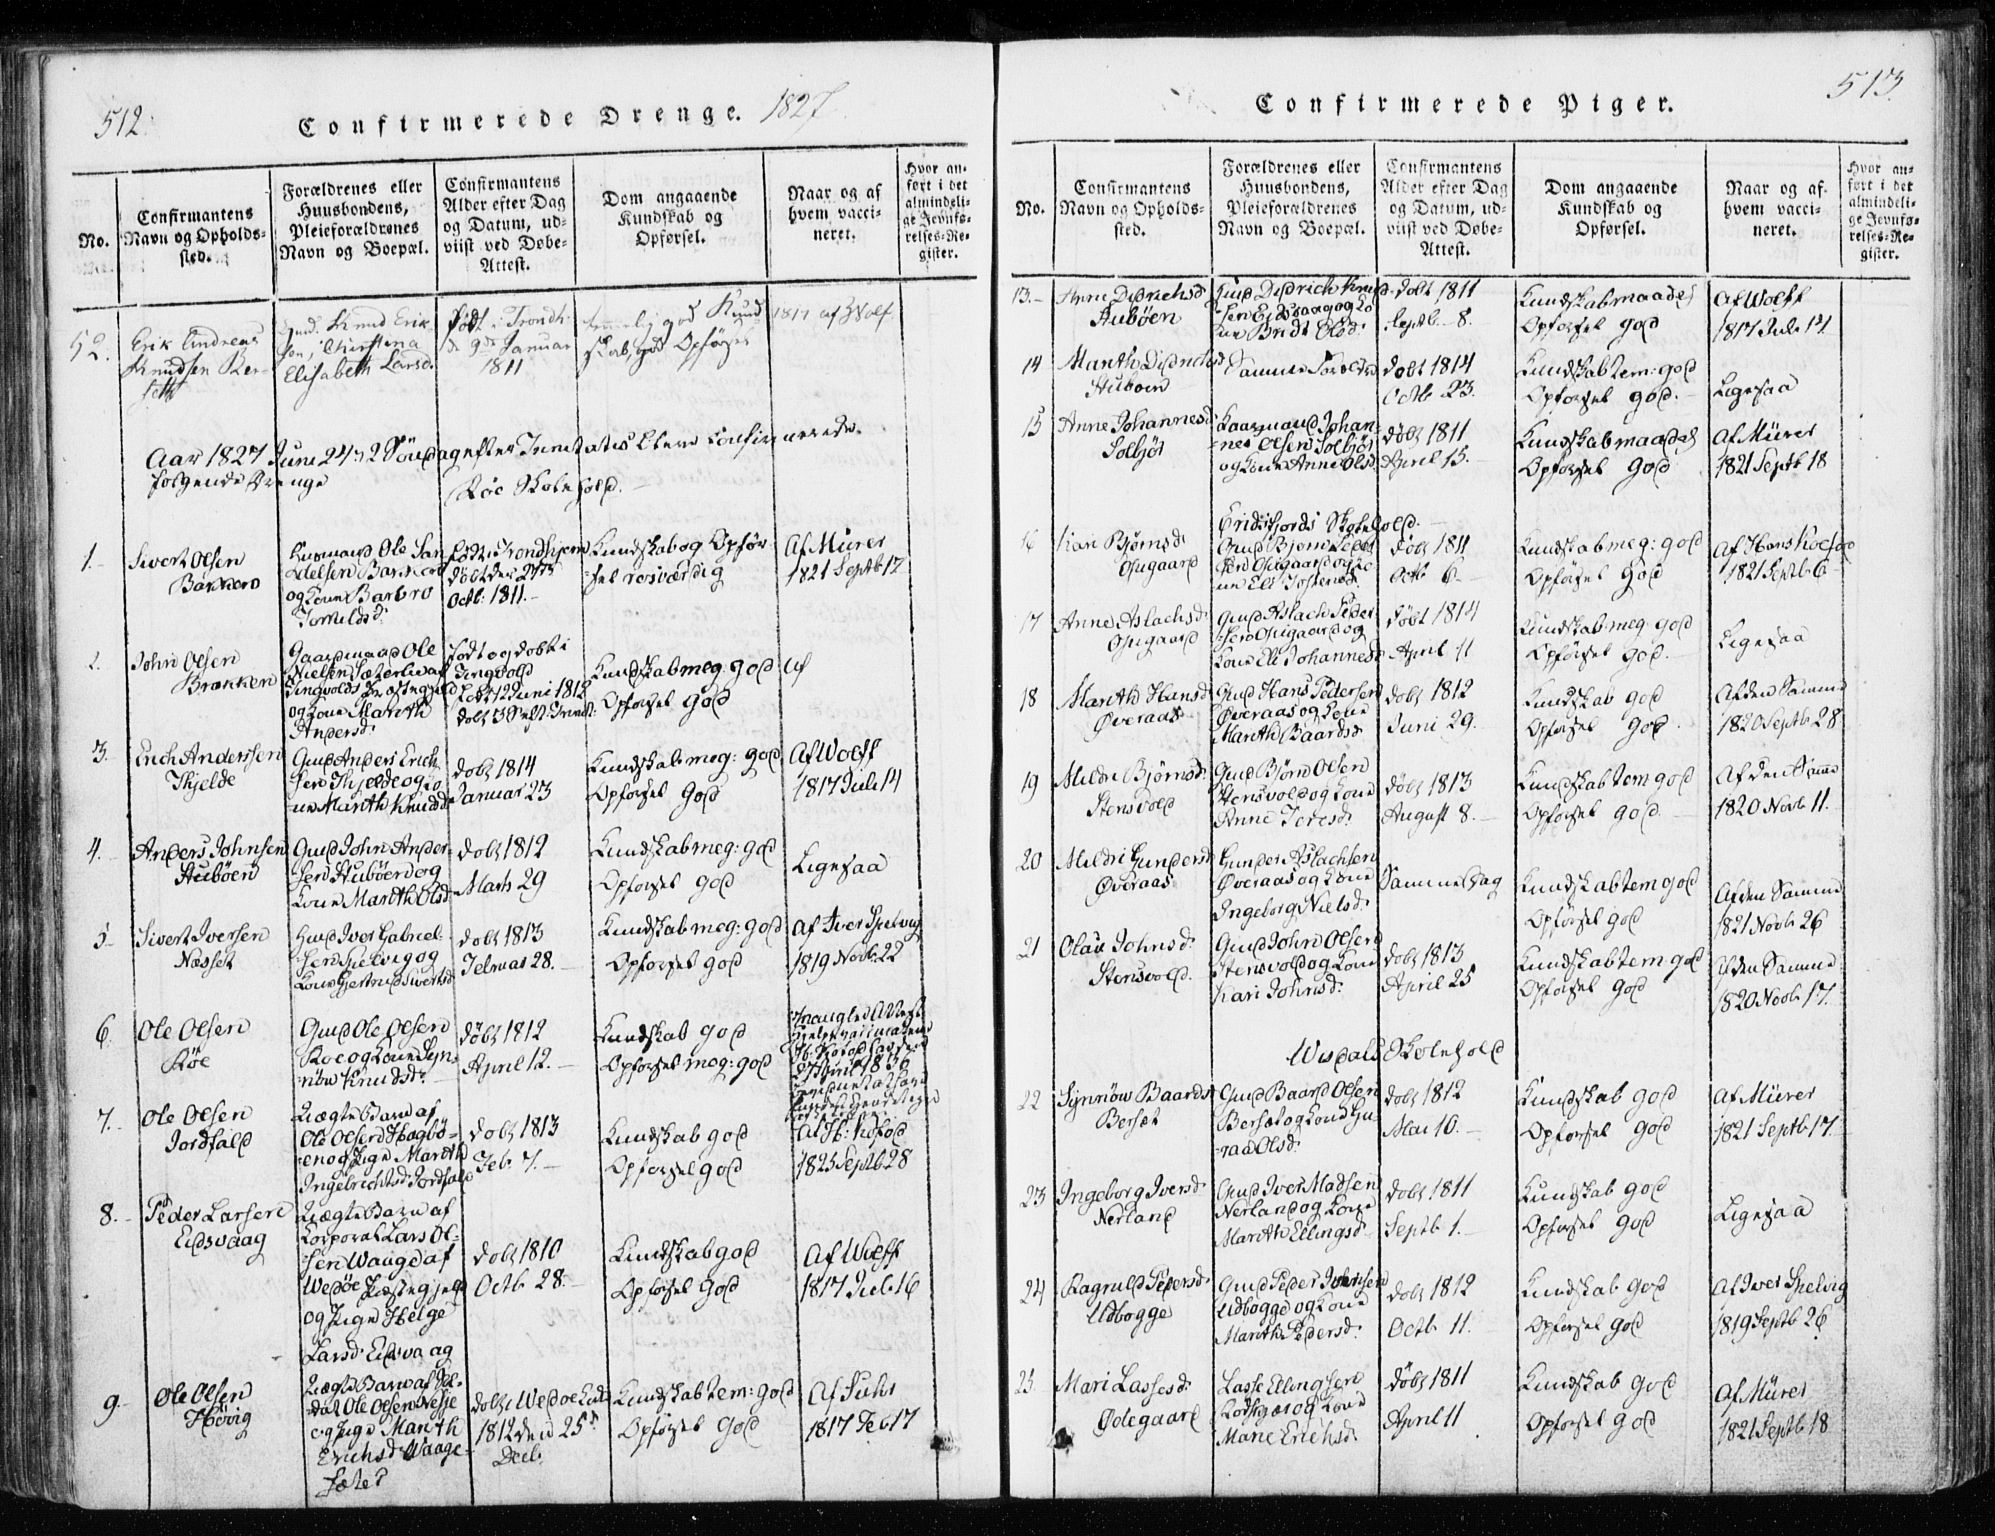 512.
Confirmerede Drenge. 1827.
No.
Confirmantens
Navn og Opholds-
sted.
Forældrenes eller
Huusbondens,
Pleieforældrenes
Navn og Boepæl.
Confirmantens
Alder efter Dag
og Datum, ud-
viist ved Døbe-
Attest.
Dom angaaende
Kundskab og
Opførsel.
Naar og af
hvem vacci-
neret.
Hvor an-
ført i det
almindeli-
ge Jevnfø-
relses-Re-
gister.
52.
Erik Andreas
Knudsen Ber-
seth
Gmd. Knud Erik-
sen, Christina
Elisabeth Larsd.
Født i Trondh:
d. 9de Januar
1811
temmelig god Kund
skab, god Opførsel
1817 af Wolf
Aar 1827 Juni 24 2 Søndag efter Trinitatis blev confirmerede
følgende Drenge
Røe Skolehold.
1.
Sivert Olsen
Bakken
Husmand Ole San
Bakken
og Kone Barbro
Torkildsd:
Født i Trondhjem
døbt den 27
Octb: 1811.
Kundskab og Opfør-
sel rosværdig
Af Mürer
1821 Septb 17
2.
John Olsen
Brækken
Gaardmand Ole
Nielsen Sæterli af
Tingvolds Præstegjeld
og Kone Marith
Andersd:
født og døbt i
Tingvold
født 12 Juni 1812
døbt 3 S. eft: Trinit:
Kundskab meg. god
Opførsel god
Af
3.
Erich Anderssen
Thjelde
Gmd Anders Erich
sen Thjelde og Ko
ne Marith Knudsd
døbt 1814
Januar 23
Kundskab meg: god
Opførsel god
Af Wolff
1817 Juli 14
4.
Anders Johnsen
Stubøen
Gmd John Ander
sen Stubøen og
Kone Marith Olsd:
døbt 1812
Marts 29
Kundskab meg: god
Opførsel god
Ligesaa
5
Sivert Iversen
Nosset
Gmd Iver Gabriel
sen Spelvig og
Kone Gjertrud Sivertsd
døbt 1813
Februar 28.
Kundskab meg: god
Opførsel god
Af Iver Spelvig
1819 Novb: 22
6.
Ole Olsen
Røe
Gmd Ole Olsen
Roe og Kone Syn-
nöw Knudsd:
døbt 1812
April 12.
Kundskab god
Opførsel meg: god
27 April 1836
7.
Ole Olsen
Jordfald
Uægte Barn af
Ole Olsen Hagbø-
en og Pige Marith
Ingebrichtsd: Jordfald
døbt 1813
Feb. 7.
Kundskab god
Opførsel god
Af H: Kofod
1825 Septb 28
8.
Peder Larsen
Eidsvaag
Uægte Barn af
Korporal Lars Ol-
sen Waage af
Wedøe Præstegjeld
og Pige Helge
Larsd: Eidsvaag
døbt 1810
Octb 28.
Kundskab god
Opførsel god
Af Wolff
1817 Juli 16
9.
Ole Olsen
Høvig
Uægte Barn af Sol-
dat Ole Olsen Nesje
og Pige Marith
Erichsd: Waage-
sæter
døbt i Wedøe
1812 den 25de
Dcb.
Kundskab tem: god
Opførsel god
Af Suhr
1817 Feb 17
513.
Confirmerede Piger.
No.
Confirmantens
Navn og Opholds-
sted.
Forældrenes eller
Huusbondens,
Pleieforældrenes
Navn og Boepæl.
Confirmantens
Alder efter Dag
og Datum, ud-
viist ved Døbe-
Attest.
Dom angaaende
Kundskab og
Opførsel.
Naar og af
hvem vacci-
neret.
Hvor an-
ført i det
almindeli-
ge Jevnfø-
relses-Re-
gister.
13.
Anne Didrichsd
Stubøen
Gmd Didrich Knud-
sen Eidsvaag og Ko
ne Bridt Olsd:
døbt 1811
Septb. 8.
Kundskab maadel
Opførsel god
Af Wolff
1817 Juli 14
14
Marith Didrichsd
Stubøen
Samme Forældre
døbt 1814
Octb 23.
Kundskab tem: god
Opførsel god.
Ligesaa
15
Anne Johannesd:
Solbjør
Gaarmand Johan-
nes Olsen Solbjør
og Kone Anne Olsd:
døbt 1811
April 15.
Kundskab maadel
Opførsel god
Af Mürer
1821 Septb 18
Eridsfjords Skolehold.
16
Kari Bjørnsd:
Opigaard
Gmd Bjørn
sen Opigaard og Ko
ne Eli Jostensd:
døbt 1811
Octb 6.
Kundskab meg: god
Opførsel god
Af Hans Kofod
1821 Septb 6
17
Anne Aslachsd:
Opigaard
Gmd Aslach Peder
sen Opigaard og
Kone Eli Johannesd
døbt 1814
April 11
Kundskab meg. god
Opførsel god.
Ligesaa
18
Marith Hansd:
Øveraas
Gmd Hans Pedersen
Øveraas og Kone
Marith Baardsd:
døbt 1812
Juni 29.
Kundskab god
Opførsel god.
Af den Samme
1820 Septb 28
19
Mildri Bjørnsd:
Stensvold
Gmd Bjørn Olsen
Stensvold og Kone
Anne Iversd:
døbt 1813
August 8.
Kundskab tem god
Opførsel god.
Af den Samme
1820 Novb 11.
20
Mildri Gundersd
Øveraas
Gunder Aslachsen
Øveraas og Kone
Ingeborg Nielsd:
Samme Dag
Kundskab tem god
Opførsel god
Af den Samme
1821 Novb 26
21
Olau Johnsd:
Stensvold.
Gmd John Olsen
Stensvold og Kone
Kari Johnsd:
døbt 1813
April 25
Kundskab tem god
Opførsel god
Af den Samme
1820 Novb 17.
Wisdals Skolehold
22
Synnöw Baardsd
Bersæt
Gmd Baard Olsen
Bersæt og Kone Gu-
raa Olsd:
døbt 1812
Mai 10.
Kundskab god
Opførsel god
Af Mürer
1821 Septb 17
23
Ingeborg Iversd:
Nerland
Gmd Iver Madsen
Nerland og Kone
Marith Ellingsd:
døbt 1811
Septb 1.
Kundskab god
Opførsel god
Ligesaa
24
Ragnild Pedersd:
Udbogge
Gmd Peder Iversen
Udbogge og Kone
Marith Pedersd:
døbt 1812
Octb 11.
Kundskab god
Opførsel god
Af Iver Spelvig
1819 Septb 26
25.
Mari Lassesd:
Ødegaard
Lasse Ellingsen
og Kone
Marie Erichsd:
døbt 1811
April 11
Kundskab god
Opførsel god
Af Mürer
1821 Septb 18